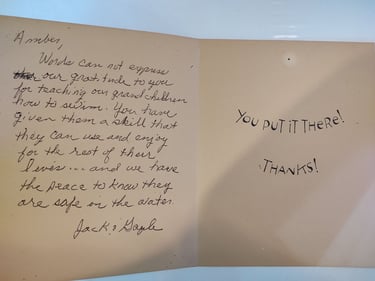 Amber,
Words can not express
our gratitude to you
for teaching our grandchildren
how to swim. You have
given them a skill that
they can use and enjoy
for the rest of their
lives... and we have
the peace to know they
are safe in the water.
Jack & Gayle
YOU PUT IT THERE!
THANKS!